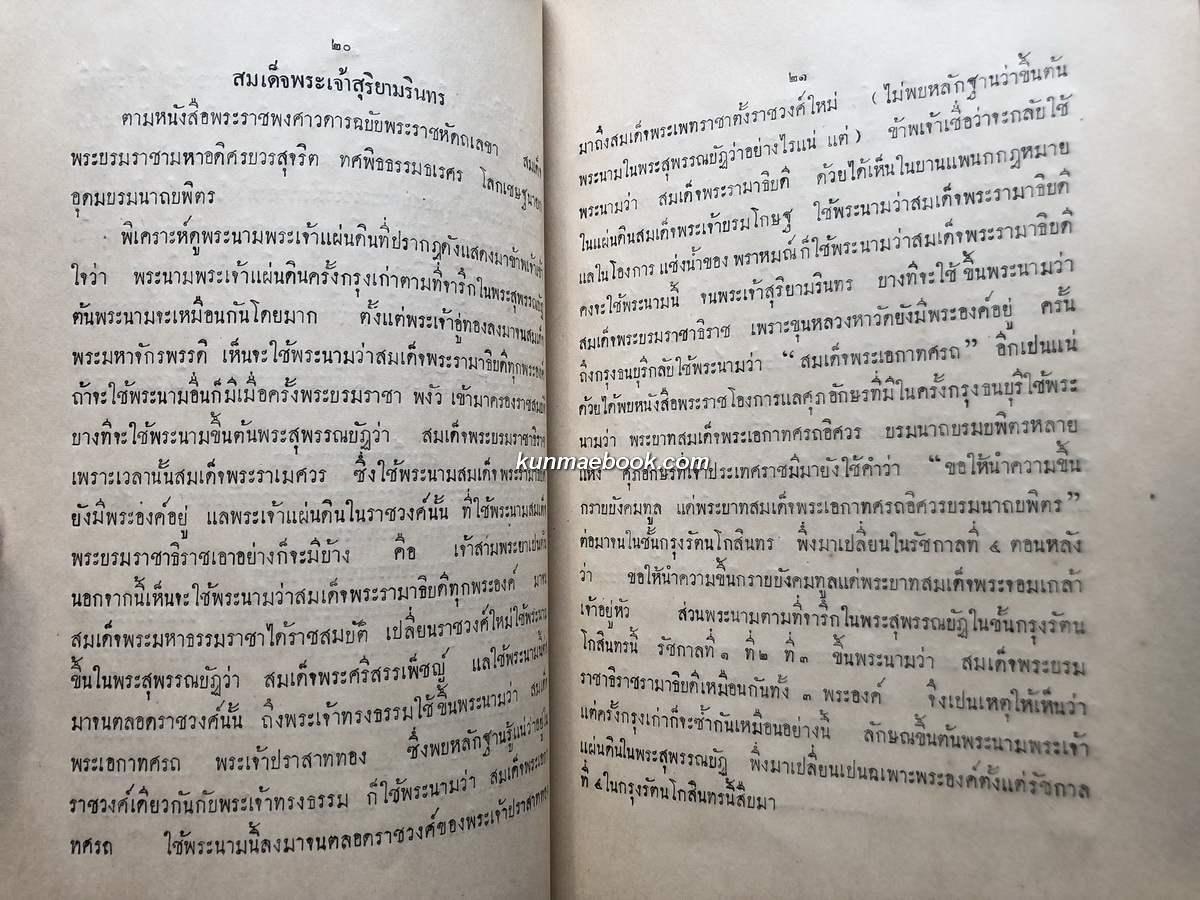 ๒๐
สมเด็จพระเจ้าสุริยามรินทร
ตามหนังสือพระราชพงศาวดารฉบับพระราชหัตถเลขา สมเด็จ
พระบรมราชามหาอดิศรบวรสุจริต ทศพิธธรรมธเรศร โลกเชษฐนายก
อุดมบรมนาถบพิตร
พิเคราะห์ดูพระนามพระเจ้าแผ่นดินที่ปรากฏดังแสดงมาข้าพเจ้าเข้า
ใจว่า พระนามพระเจ้าแผ่นดินครั้งกรุงเก่าตามที่จาริกในพระสุพรรณบัฏ
ต้นพระนามจะเหมือนกันโดยมาก ตั้งแต่พระเจ้าอู่ทองลงมาจนสมเด็จ
พระมหาจักรพรรดิ เห็นจะใช้พระนามว่าสมเด็จพระรามาธิบดีทุกพระองค์
ถ้าจะใช้พระนามอื่นก็มีเมื่อครั้งพระบรมราชา พงัว เข้ามาครองราชสมบัติ
บางทีจะใช้พระนามขึ้นต้นพระสุพรรณบัฏว่า สมเด็จพระบรมราชาธิราช
เพราะเวลานั้นสมเด็จพระราเมศวร ซึ่งใช้พระนามสมเด็จพระรามาธิบดี
ยังมีพระองค์อยู่ แลพระเจ้าแผ่นดินในราชวงศ์นั้น ที่ใช้พระนามสมเด็จ
พระบรมราชาธิราชเอาอย่างก็จะมีบ้าง คือ เจ้าสามพระยาเป็นต้น
นอกจากนี้เห็นจะใช้พระนามว่าสมเด็จพระรามาธิบดีทุกพระองค์ มาจน
สมเด็จพระมหาธรรมราชาได้ราชสมบัติ เปลี่ยนราชวงศ์ใหม่ใช้พระนาม
ขึ้นในพระสุพรรณบัฏว่า สมเด็จพระศรีสรรเพ็ชญ์ แลใช้พระนามนี้
มาจนตลอดราชวงศ์นั้น ถึงพระเจ้าทรงธรรมใช้ขึ้นพระนามว่า สมเด็จ
พระเอกาทศรถ พระเจ้าปราสาททอง ซึ่งพบหลักฐานรู้แน่ว่าอยู่ใน
ราชวงศ์เดียวกันกับพระเจ้าทรงธรรม ก็ใช้พระนามว่า สมเด็จพระเอกา
ทศรถ ใช้พระนามนี้ลงมาจนตลอดราชวงศ์ของพระเจ้าปราสาททอง
๒๑
มาถึงสมเด็จพระเพทราชาตั้งราชวงศ์ใหม่ (ไม่พบหลักฐานว่าขึ้นต้น
พระนามในพระสุพรรณบัฏว่าอย่างไรแน่ แต่) ข้าพเจ้าเชื่อว่าจะกลับใช้
พระนามว่า สมเด็จพระรามาธิบดี ด้วยได้เห็นในบานแพนกกฎหมาย
ในแผ่นดินสมเด็จพระเจ้าบรมโกษฐ ใช้พระนามว่าสมเด็จพระรามาธิบดี
แลในโองการ แช่งน้ำของ พราหมณ์ ก็ใช้พระนามว่าสมเด็จพระรามาธิบดี
คงจะใช้พระนามนี้ จนพระเจ้าสุริยามรินทร บางทีจะใช้ ขึ้นพระนามว่า
สมเด็จพระบรมราชาธิราช เพราะขุนหลวงหาวัดยังมีพระองค์อยู่ ครั้น
ถึงกรุงธนบุรีกลับใช้พระนามว่า “สมเด็จพระเอกาทศรถ” อีกเปนแน่
ด้วยได้พบหนังสือพระราชโองการแลศุภอักษรที่มีในครั้งกรุงธนบุรีใช้พระ
นามว่า พระบาทสมเด็จพระเอกาทศรถอิศวร บรมนาถบรมบพิตรหลาย
แห่ง ศุภอักษรที่เจ้าประเทศราชมีมายังใช้คำว่า “ขอให้นำความขึ้น
กราบบังคมทูล แด่พระบาทสมเด็จพระเอกาทศรถอิศวรบรมนาถบพิตร”
ต่อมาจนในชั้นกรุงรัตนโกสินทร พึ่งมาเปลี่ยนในรัชกาลที่ ๔ ตอนหลัง
ว่า ขอให้นำความขึ้นกราบบังคมทูลแด่พระบาทสมเด็จพระจอมเกล้า
เจ้าอยู่หัว ส่วนพระนามตามที่จาริกในพระสุพรรณบัฏในชั้นกรุงรัตน
โกสินทรนี้ รัชกาลที่ ๑ ที่ ๒ ที่ ๓ ขึ้นพระนามว่า สมเด็จพระบรม
ราชาธิราชรามาธิบดีเหมือนกันทั้ง ๓ พระองค์ จึงเปนเหตุให้เห็นว่า
แต่ครั้งกรุงเก่าก็จะซ้ำกันเหมือนอย่างนี้ ลักษณขึ้นต้นพระนามพระเจ้า
แผ่นดินในพระสุพรรณบัฏ พึ่งมาเปลี่ยนเปนฉเพาะพระองค์ตั้งแต่รัชกาล
ที่ ๔ ในกรุงรัตนโกสินทรนี้สืบมา
kunmaebook.com